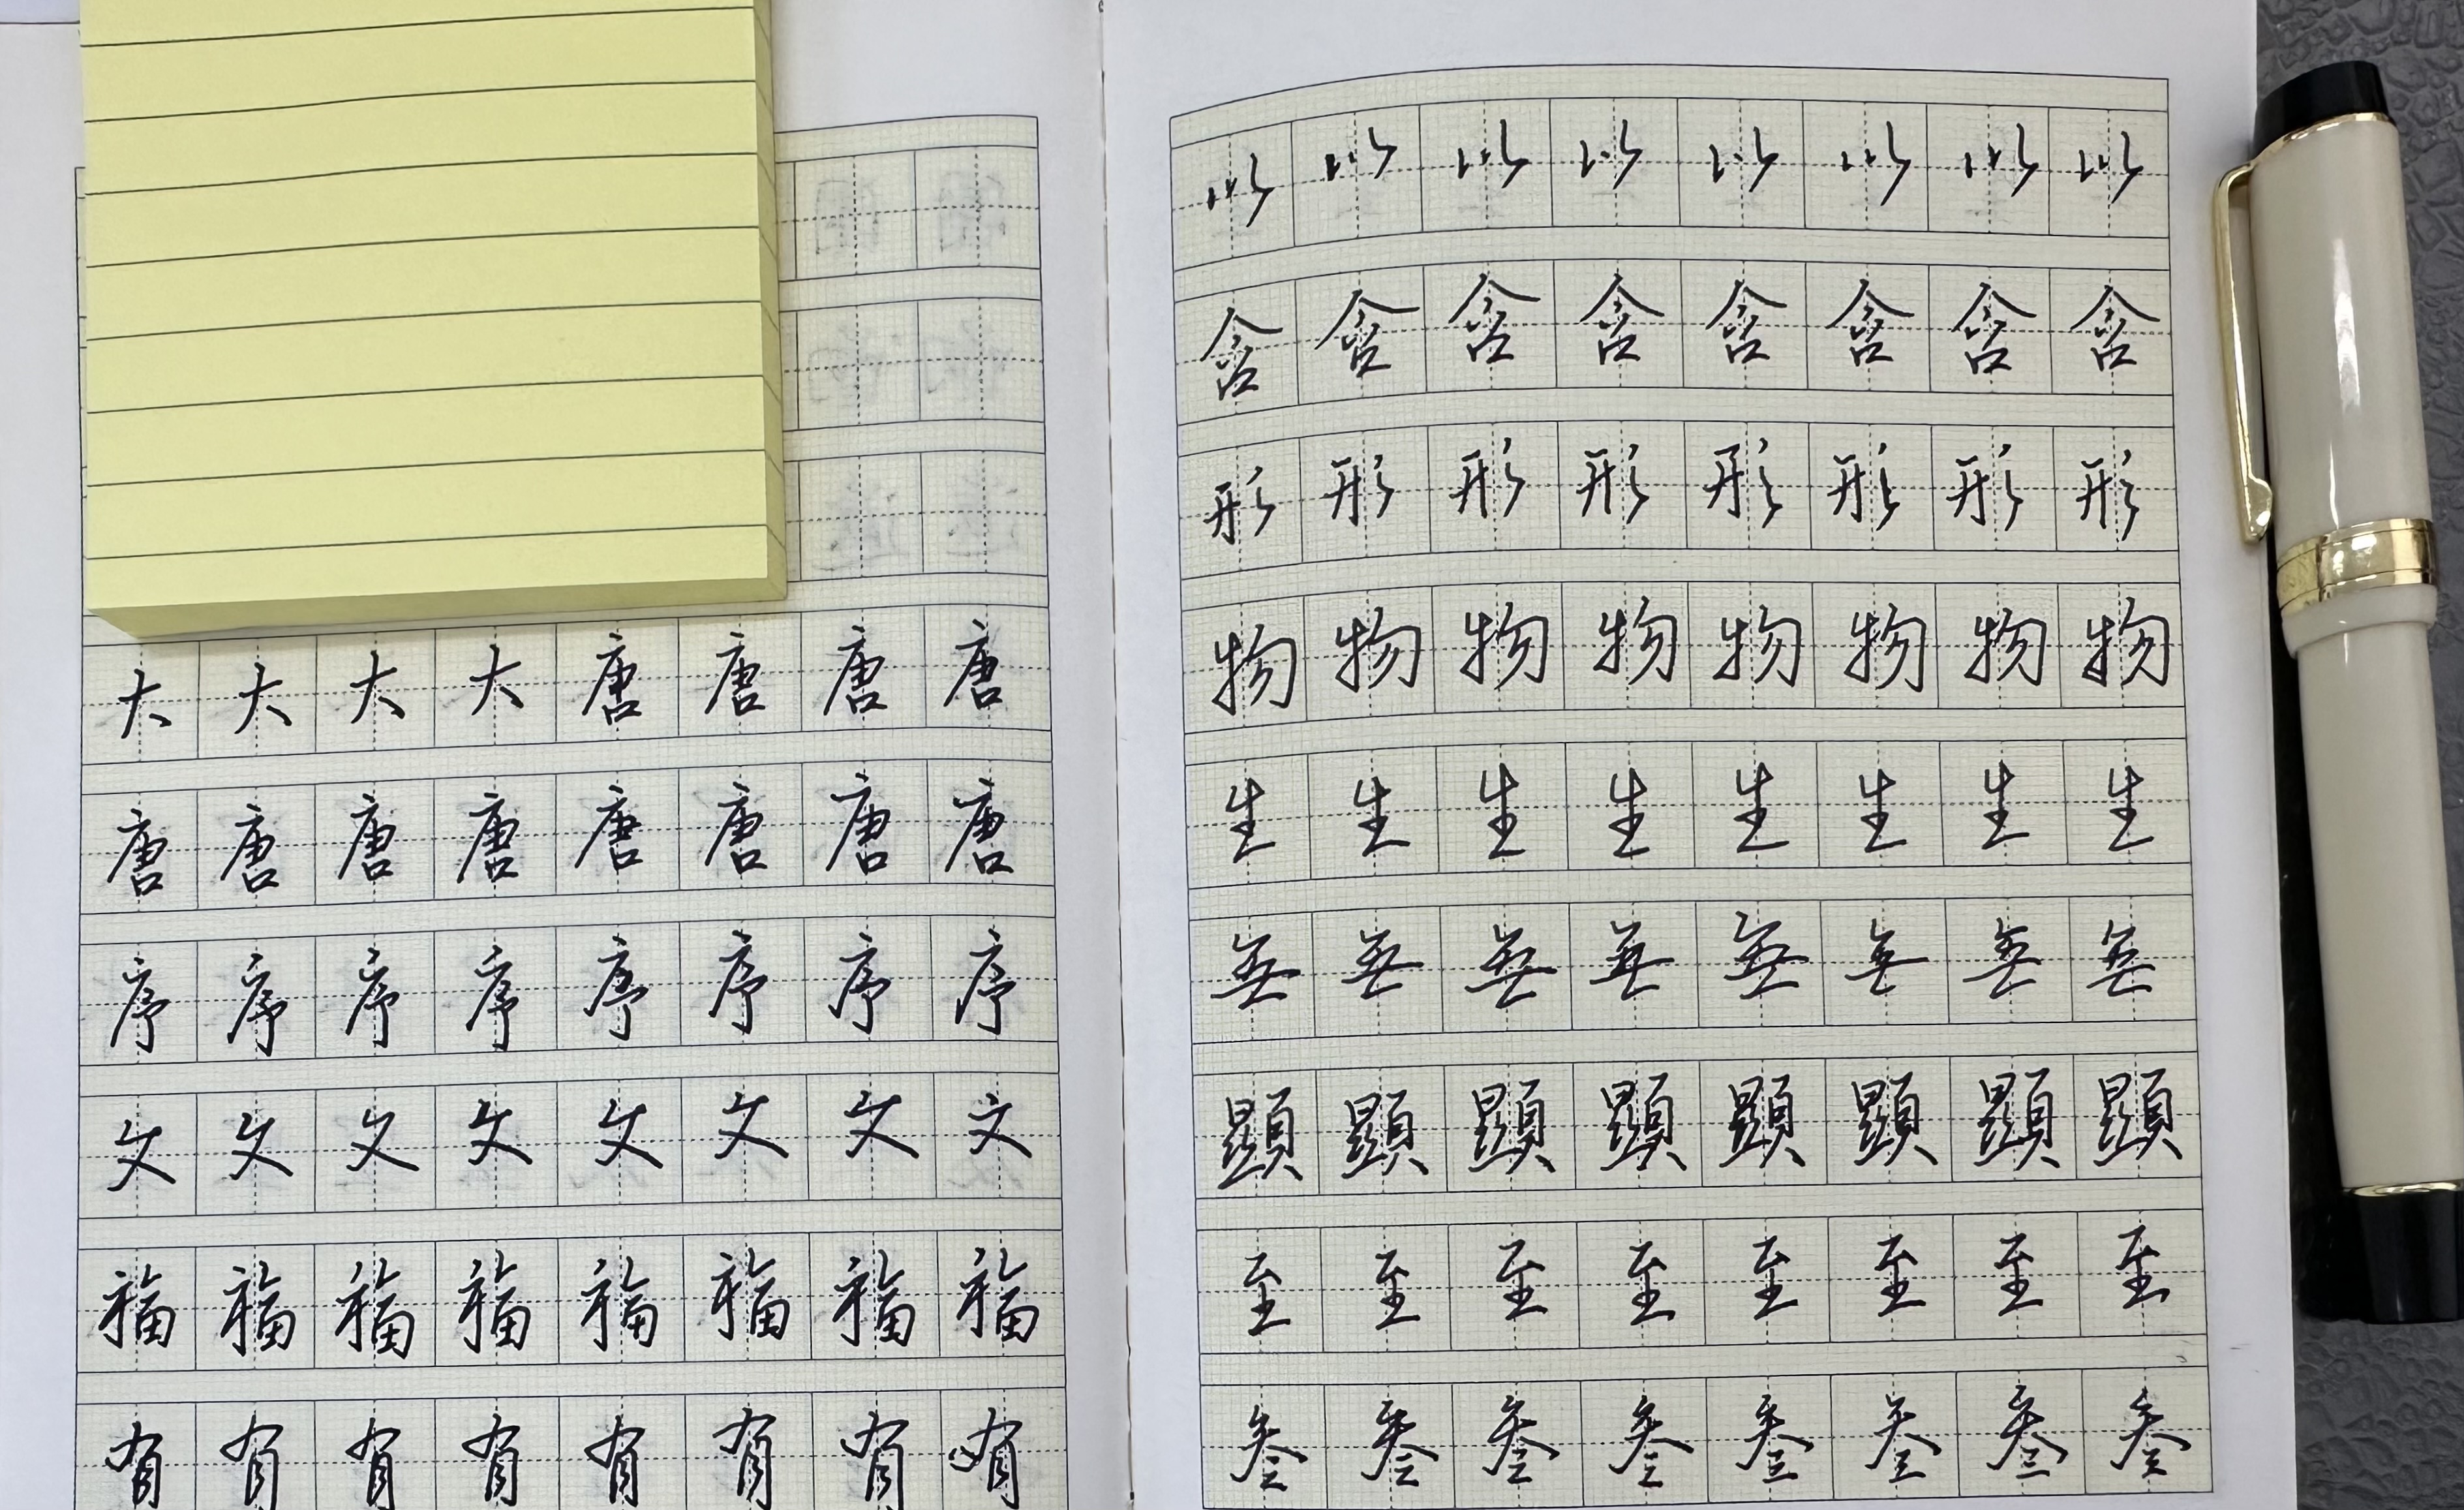 大大大大唐唐唐唐
唐唐唐唐唐唐唐唐
序序序序序序序序
文文文文文文文文
福福福福福福福福
有有有有有有有有
以以以以以以以以
含含含含含含含含
形形形形形形形形
物物物物物物物物
生生生生生生生生
無無無無無無無無
顕顕顕顕顕顕顕顕
至至至至至至至至
叁叁叁叁叁叁叁叁